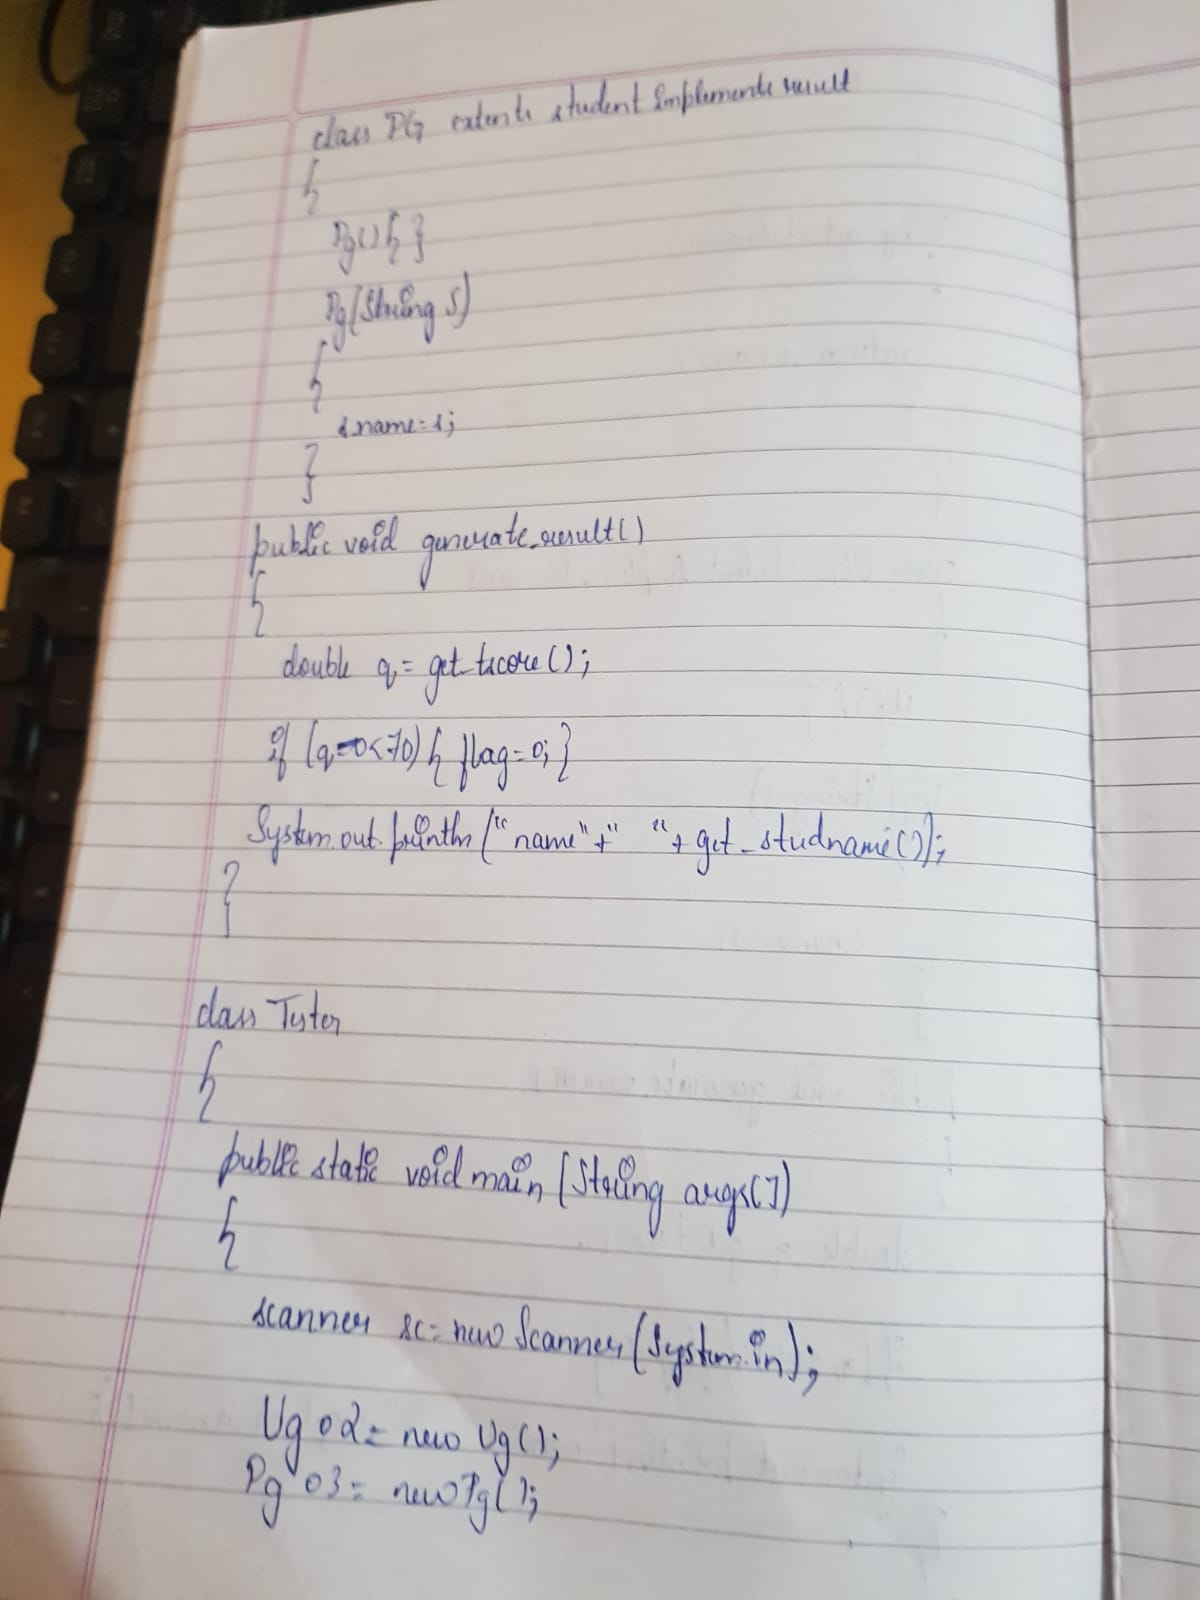 class PG extents student implements result
{
Pg() { }
Pg(String S)
{
s.name=s;
}
public void generate_result()
{
double q= get_tscore();
if (q=0<70) { flag=0; }
System.out.println("name"+" "+get_studname());
}
class Tester
{
public static void main(String args[])
{
scanner sc= new Scanner(System.in);
Ug o2= new Ug();
Pg o3= new Pg();